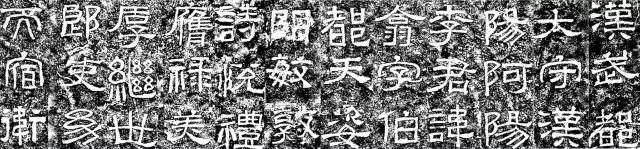 漢武都
大守漢
陽阿陽
李君諱
翕字伯
都天姿
明敏敦
詩悅禮
膺祿美
厚繼世
郎吏幼
而宿衛